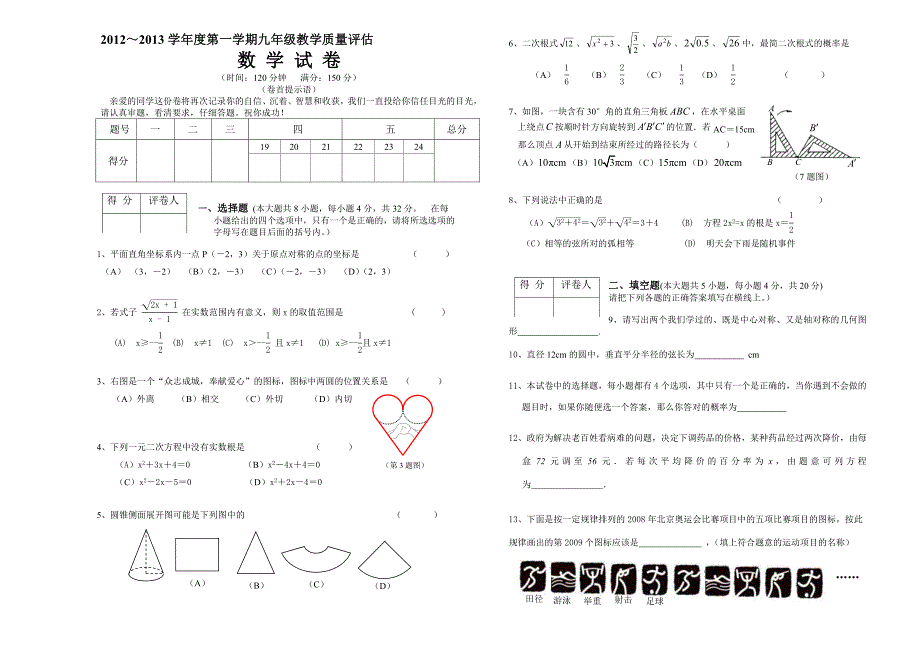 2012～2013 学年度第一学期九年级教学质量评估
数 学 试 卷
（时间：120 分钟　满分：150 分）
（卷首提示语）
亲爱的同学这份卷将再次记录你的自信、沉着、智慧和收获，我们一直投给你信任目光的目光，
请认真审题，看清要求，仔细答题。祝你成功！
题号 一 二 三 四 五 总分
得分 19 20 21 22 23 24
得 分 评卷人
一、选择题 (本大题共 8 小题，每小题 4 分，共 32 分。 在每
小题给出的四个选项中，只有一个是正确的，请将所选选项的
字母写在题目后面的括号内。)
1、平面直角坐标系内一点 P（-2，3）关于原点对称的点的坐标是 （ ）
（A）（3，-2） （B）（2，-3） （C）（-2，-3） （D）（2，3）
2、若式子 √(2x + 1)/(x - 1) 在实数范围内有意义，则 x 的取值范围是 （ ）
(A) x≥-1/2 (B) x≠1 (C) x＞-1/2 且 x≠1 (D) x≥-1/2且 x≠1
3、右图是一个“众志成城，奉献爱心”的图标，图标中两圆的位置关系是 （ ）
（A）外离 （B）相交 （C）外切 （D）内切
4、下列一元二次方程中没有实数根是 （ ）
（A）x²＋3x＋4＝0 （B）x²－4x＋4＝0
（C）x²－2x－5＝0 （D）x²＋2x－4＝0
（第 3 题图）
5、圆锥侧面展开图可能是下列图中的 （ ）
（A） （B） （C） （D）
6、二次根式 √12 、√(x²＋3) 、√(3/2) 、√(a²b) 、2√0.5 、√26 中，最简二次根式的概率是
（A） 1/6 （B） 2/3 （C） 1/3 （D） 1/2 （ ）
7、如图，一块含有 30°角的直角三角板 ABC，在水平桌面
上绕点 C 按顺时针方向旋转到 A′B′C′ 的位置．若 AC＝15cm
那么顶点 A 从开始到结束所经过的路径长为（ ）
（A）10πcm （B）10√3πcm（C）15πcm（D）20πcm
A B′ B C A′
（7 题图）
8、下列说法中正确的是 （ ）
（A）√(3²＋4²)＝√3²＋√4²＝3＋4 (B) 方程 2x²=x 的根是 x＝1/2
（C）相等的弦所对的弧相等 (D) 明天会下雨是随机事件
得 分 评卷人
二、填空题(本大题共 5 小题，每小题 4 分，共 20 分)
请把下列各题的正确答案填写在横线上。）
9、请写出两个我们学过的、既是中心对称、又是轴对称的几何图
形________________.
10、直径 12cm 的圆中，垂直平分半径的弦长为__________ cm
11、本试卷中的选择题，每小题都有 4 个选项，其中只有一个是正确的，当你遇到不会做的
题目时，如果你随便选一个答案，那么你答对的概率为__________
12、政府为解决老百姓看病难的问题，决定下调药品的价格，某种药品经过两次降价，由每
盒 72 元调至 56 元．若每次平均降价的百分率为 x，由题意可列方程
为______________．
13、下面是按一定规律排列的 2008 年北京奥运会比赛项目中的五项比赛项目的图标，按此
规律画出的第 2009 个图标应该是____________，（填上符合题意的运动项目的名称）
……
田径 游泳 举重 射击 足球